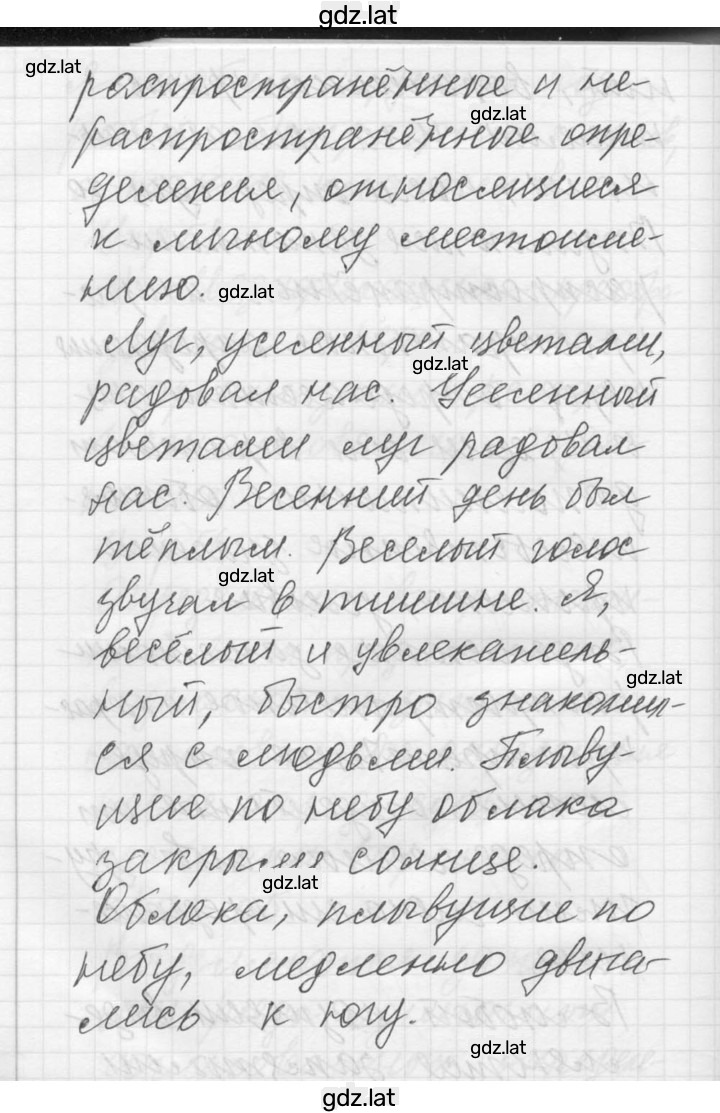 gdz.lat
gdz.lat
распространённые и не-
gdz.lat
распространённые опре-
деления, относящиеся
к личному местоиме-
нию. gdz.lat
Луг, уселенный цветами,
gdz.lat
радовал нас. Уселенный
цветами луг радовал
нас. Весенний день был
тёплым. Веселый голос
gdz.lat
звучал в тишине. Я,
весёлый и увлекатель-
gdz.lat
ный, быстро знакомил-
ся с людьми. Плыву-
щие по небу облака
закрыли солнце.
gdz.lat
Облака, плывущие по
небу, медленно двига-
лись к югу.
gdz.lat
gdz.lat